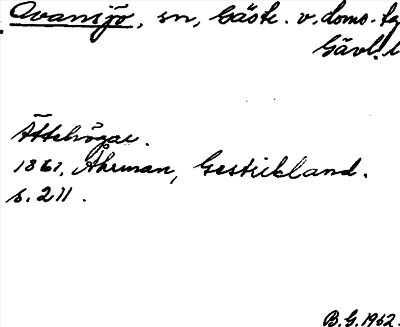 Ovansjö, sn, Gästr. v. doms. tg
Gävl. l
Ättehögar.
1861, Åhrman, Gestrikland.
s. 211.
B.G. 1962.